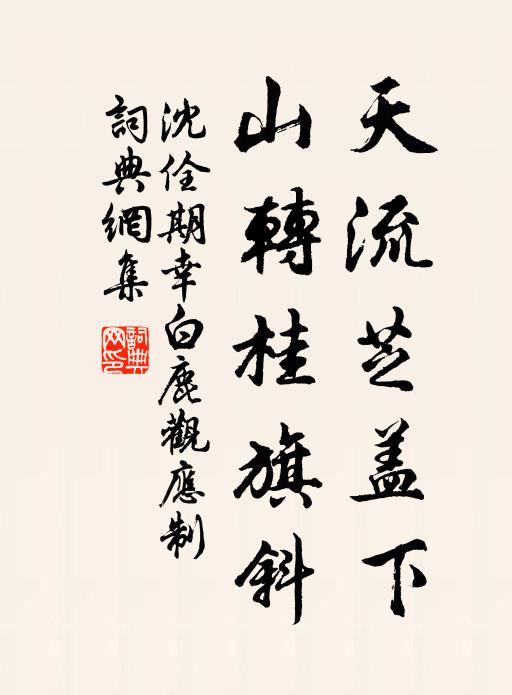 天流芝盖下
山轉桂旗斜
沈佺期幸白鹿觀應制
詞典網集
詞典网印